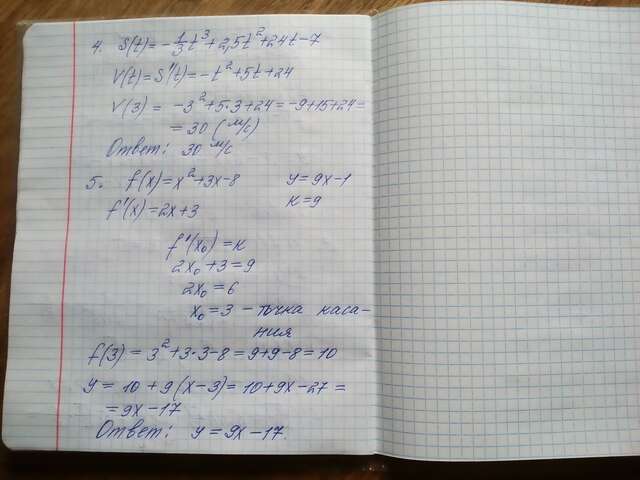 4. S(t)=-1/3t³+2,5t²+24t-7
V(t)=S'(t)=-t²+5t+24
V(3) = -3²+5·3+24=-9+15+24=
=30 (м/с)
Ответ: 30 м/с
5. f(x)=x²+3x-8 y=9x-1
f'(x)=2x+3 к=9
f'(x₀)=к
2x₀+3=9
2x₀=6
x₀=3 - точка каса-
ния
f(3) = 3²+3·3-8=9+9-8=10
y= 10+9(x-3)=10+9x-27=
=9x-17
Ответ: y=9x-17.